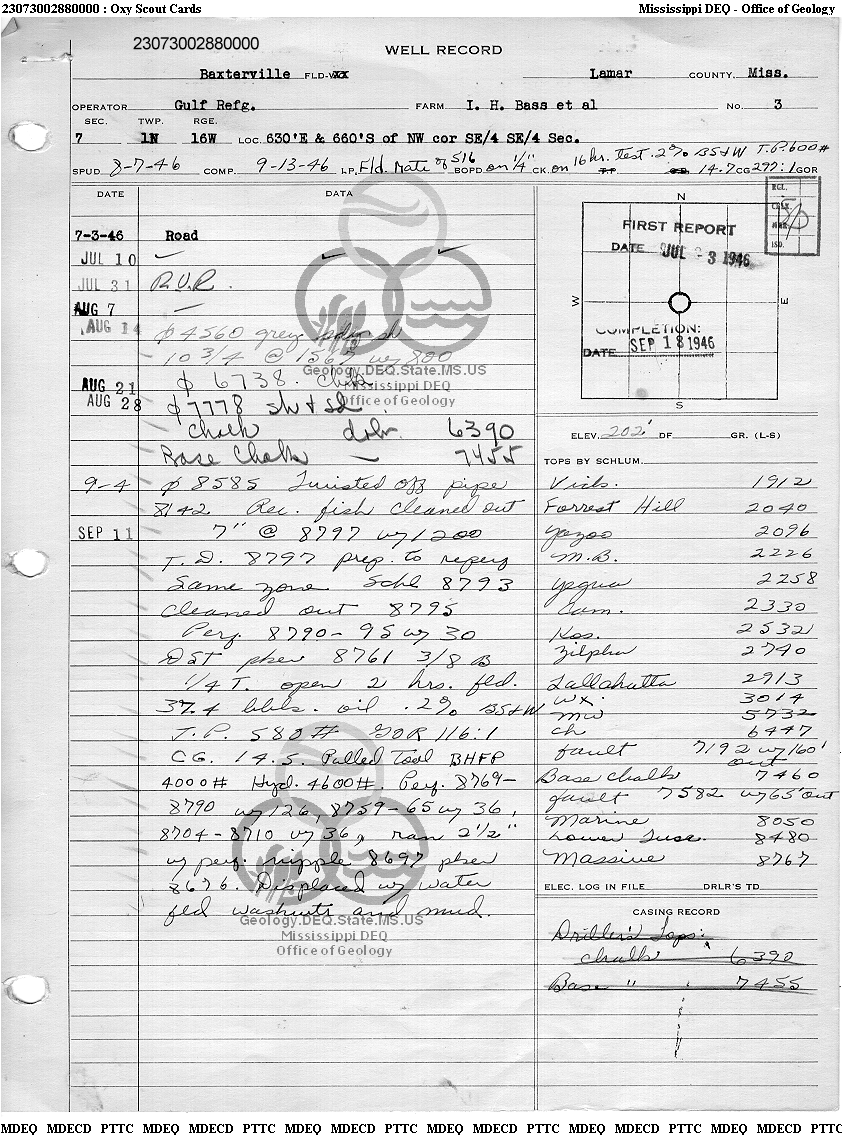 23073002880000 : Oxy Scout Cards
Mississippi DEQ - Office of Geology
23073002880000
WELL RECORD
Baxterville FLD-WXX Lamar COUNTY, Miss.
OPERATOR Gulf Refg. FARM I. H. Bass et al No. 3
SEC. TWP. RGE.
7 1N 16W LOC. 630'E & 660'S of NW cor SE/4 SE/4 Sec.
SPUD 8-7-46 COMP. 9-13-46 I.P. Fld. Rate of 516 BOPD on 1/4" CK. on 16 hr. test .2% BS&W T.P. 600#
14.7 CG 297:1 GOR
DATE DATA
7-3-46 Road
JUL 10
JUL 31 R.U.R.
AUG 7 —
AUG 14 ϕ 4560 grey sdy sh
10 3/4 @ 1567 w/ 800
AUG 21 ϕ 6738. chlk
AUG 28 ϕ 7778 sh & sd.
Chalk drlr. 6390
Base Chalk — 7455
9-4 ϕ 8585 Twisted off pipe
8142 Rec. fish cleaned out
SEP 11 7" @ 8797 w/1200
T.D. 8797 prep. to reperf
Same zone Schl 8793
Cleaned out 8795
Perf. 8790-95 w/ 30
DST pker 8761 3/8 B
1/4 T. open 2 hrs. fld.
37.4 bbls. oil .2% BS&W
T.P. 580# GOR 116:1
CG. 14.5. Pulled Tool BHFP
4000# Hyd. 4600#. Perf. 8769-
8790 w/126, 8759-65 w/ 36,
8704-8710 w/ 36, ran 2 1/2"
w/ perf. nipple 8697 pker
8676. Displaced w/ water
fld washwtr and mud.
N
W
E
S
RGL.
ISD.
FIRST REPORT
DATE JUL - 3 1946
COMPLETION:
DATE SEP 18 1946
ELEV. 202' DF GR. (L-S)
TOPS BY SCHLUM.
Vicks. 1912
Forrest Hill 2040
Yazoo 2096
M.B. 2226
Yegua 2258
Cam. 2330
Kos. 2532
Zilpha 2740
Tallahatta 2913
WX 3014
MW 5732
Ch 6447
fault 7192 w/160'
out
Base chalk 7460
fault 7582 w/65' out
Marine 8050
Lower Tusc. 8480
Massive 8767
ELEC. LOG IN FILE DRLR'S TD
CASING RECORD
Driller's Tops:
Chalk 6390
Base " 7455
Geology.DEQ.State.MS.US
Mississippi DEQ
Office of Geology
Geology.DEQ.State.MS.US
Mississippi DEQ
Office of Geology
MDEQ MDECD PTTC MDEQ MDECD PTTC MDEQ MDECD PTTC MDEQ MDECD PTTC MDEQ MDECD PTTC MDEQ MDECD PTTC